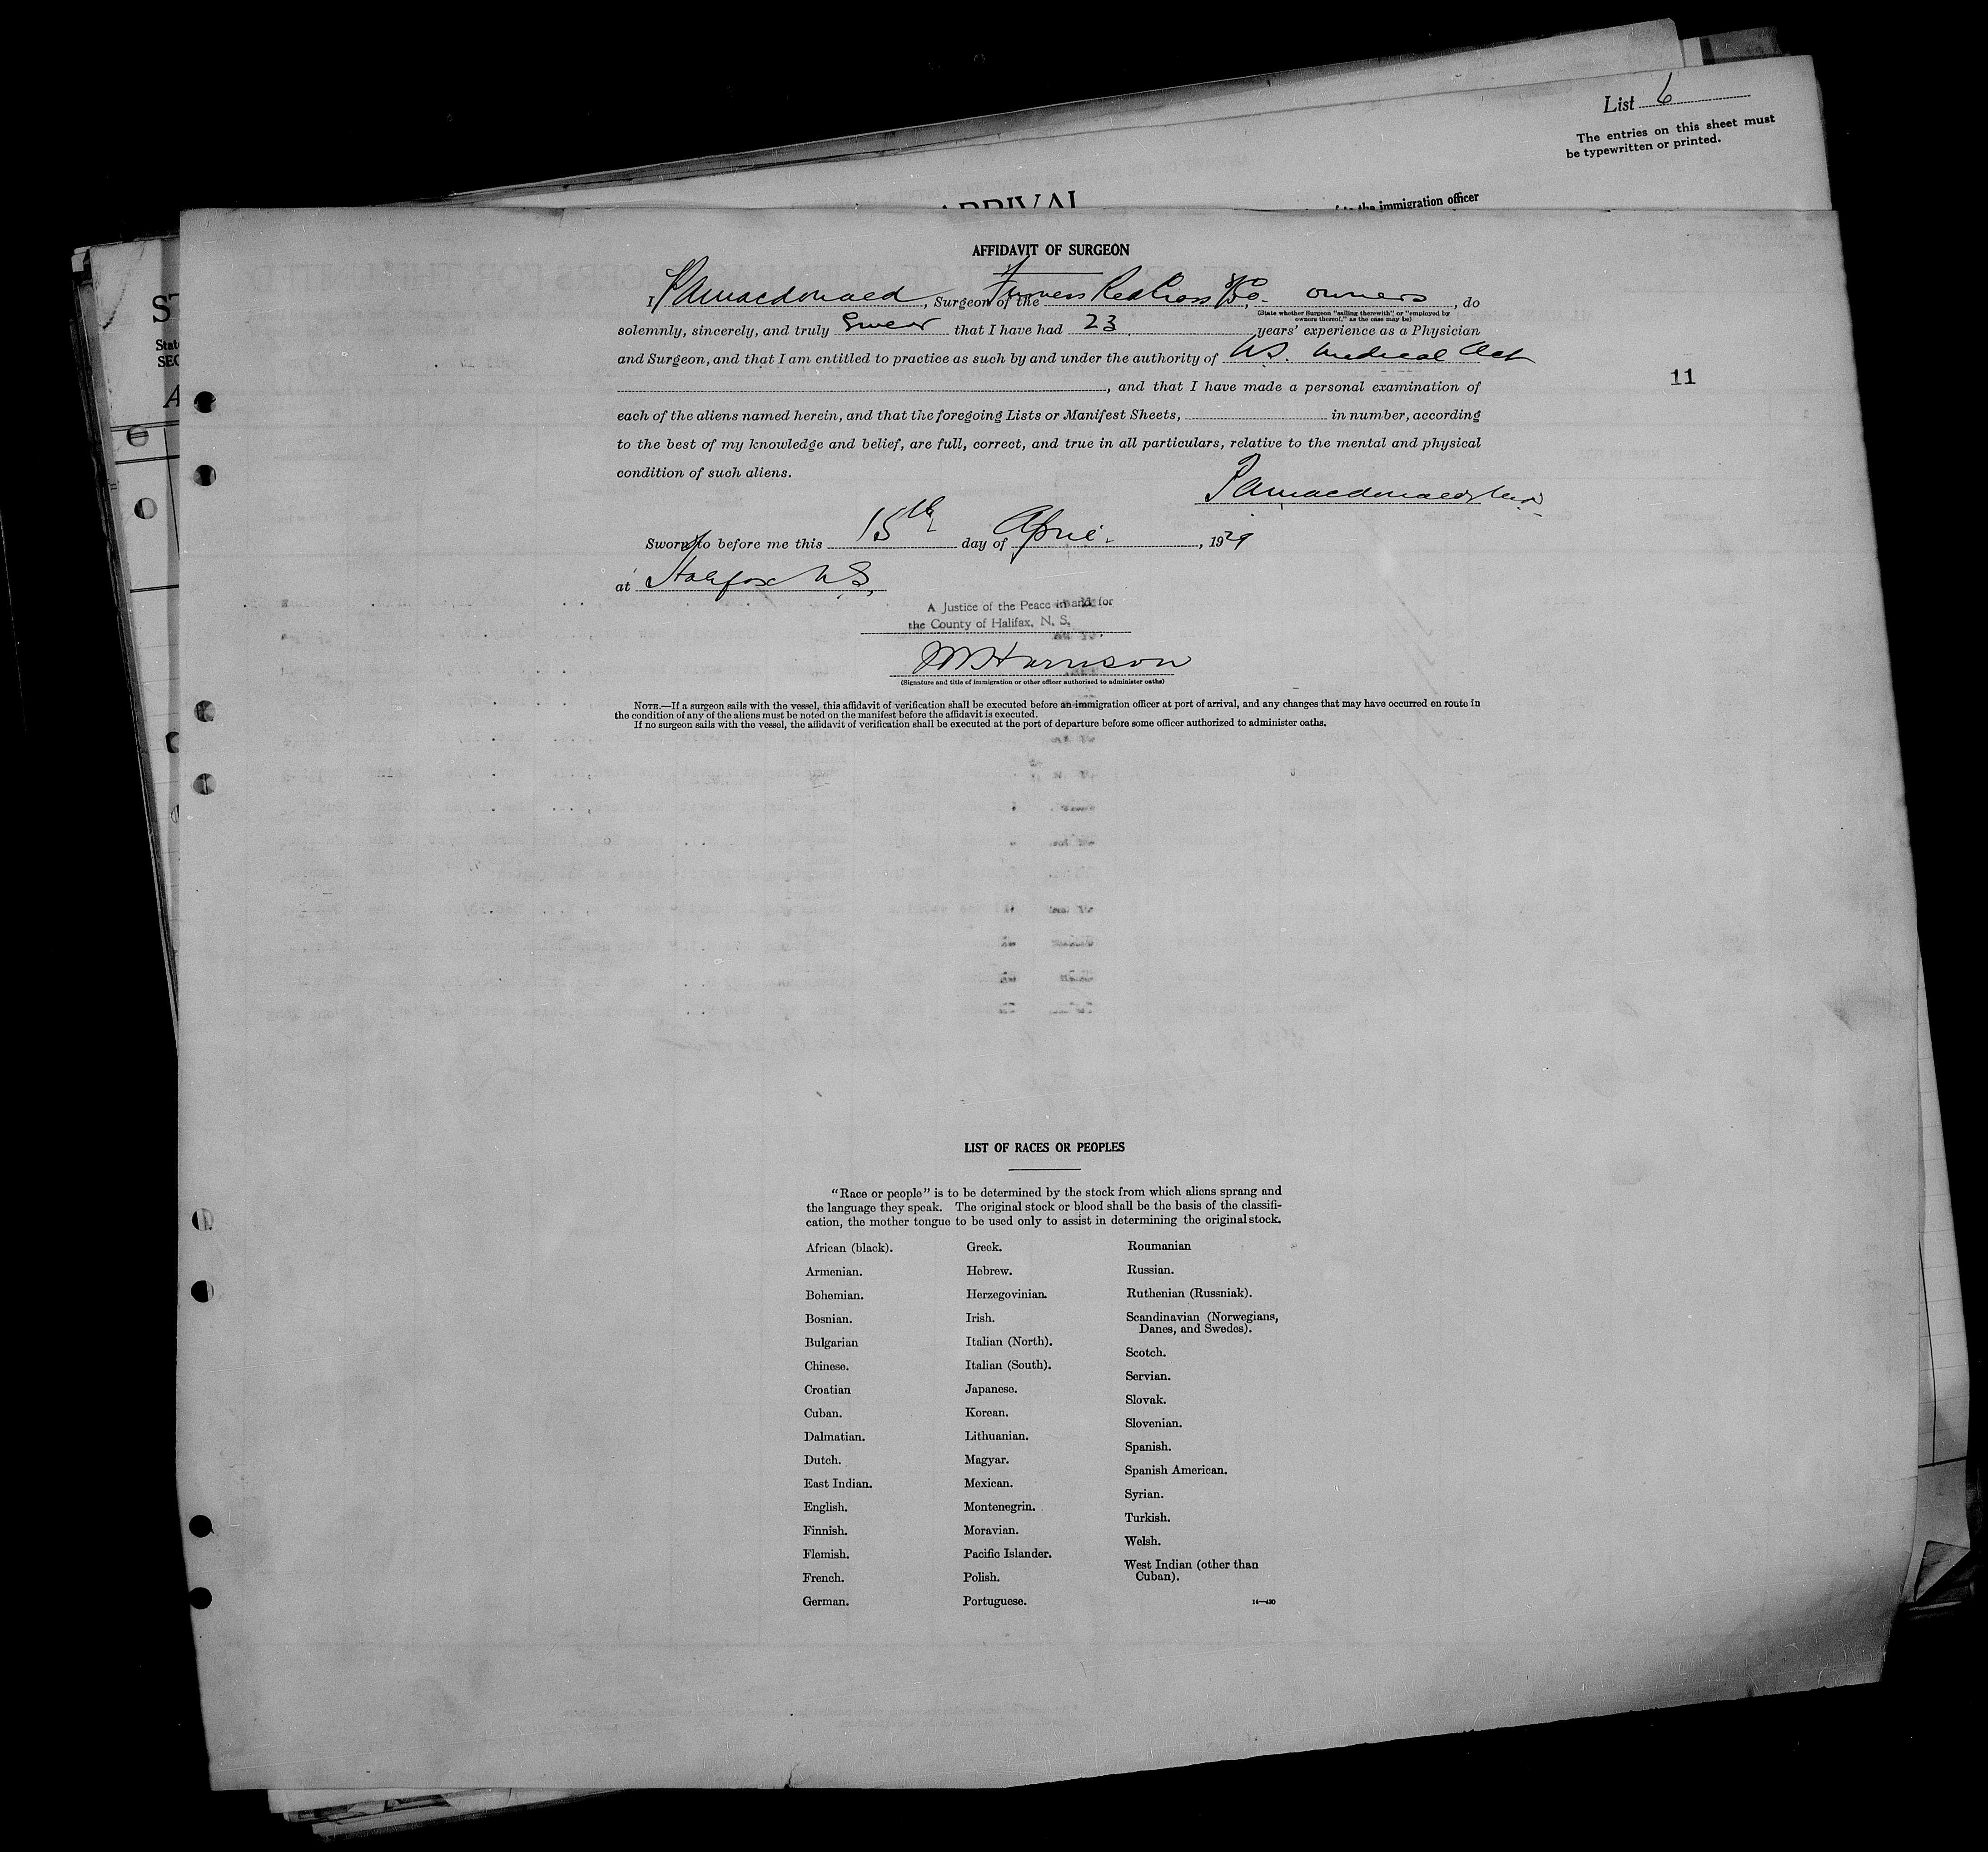 List 6
The entries on this sheet must
be typewritten or printed.
ARRIVAL
to the immigration officer
AFFIDAVIT OF SURGEON
I PAMacdonald, Surgeon of the Furness Red Cross owners, do
(State whether Surgeon "sailing therewith" or "employed by
owners thereof," as the case may be)
solemnly, sincerely, and truly Swear that I have had 23 years' experience as a Physician
and Surgeon, and that I am entitled to practice as such by and under the authority of N.S. Medical Act
, and that I have made a personal examination of
11
each of the aliens named herein, and that the foregoing Lists or Manifest Sheets, in number, according
to the best of my knowledge and belief, are full, correct, and true in all particulars, relative to the mental and physical
condition of such aliens.
PAMacdonald
Sworn to before me this 15th day of April, 1929
at Halifax NS
A Justice of the Peace in and for
the County of Halifax, N. S.
Harrison
(Signature and title of immigration or other officer authorized to administer oaths)
NOTE.—If a surgeon sails with the vessel, this affidavit of verification shall be executed before an immigration officer at port of arrival, and any changes that may have occurred en route in
the condition of any of the aliens must be noted on the manifest before the affidavit is executed.
If no surgeon sails with the vessel, the affidavit of verification shall be executed at the port of departure before some officer authorized to administer oaths.
LIST OF RACES OR PEOPLES
"Race or people" is to be determined by the stock from which aliens sprang and
the language they speak. The original stock or blood shall be the basis of the classifi-
cation, the mother tongue to be used only to assist in determining the original stock.
African (black).
Armenian.
Bohemian.
Bosnian.
Bulgarian
Chinese.
Croatian
Cuban.
Dalmatian.
Dutch.
East Indian.
English.
Finnish.
Flemish.
French.
German.
Greek.
Hebrew.
Herzegovinian.
Irish.
Italian (North).
Italian (South).
Japanese.
Korean.
Lithuanian.
Magyar.
Mexican.
Montenegrin.
Moravian.
Pacific Islander.
Polish.
Portuguese.
Roumanian
Russian.
Ruthenian (Russniak).
Scandinavian (Norwegians,
Danes, and Swedes).
Scotch.
Servian.
Slovak.
Slovenian.
Spanish.
Spanish American.
Syrian.
Turkish.
Welsh.
West Indian (other than
Cuban).
14—430